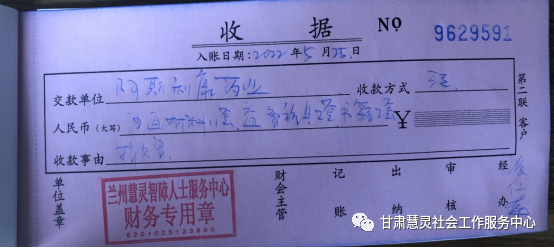 收据 NO 9629591
入账日期:2022年5月25日
交款单位 阿斯利康药业 收款方式
人民币(大写) ¥
收款事由 捐赠
第二联 客户
单位盖章 财会主管 记账 出纳 审核 经办
兰州慧灵智障人士服务中心
财务专用章
6201025133880
甘肃慧灵社会工作服务中心